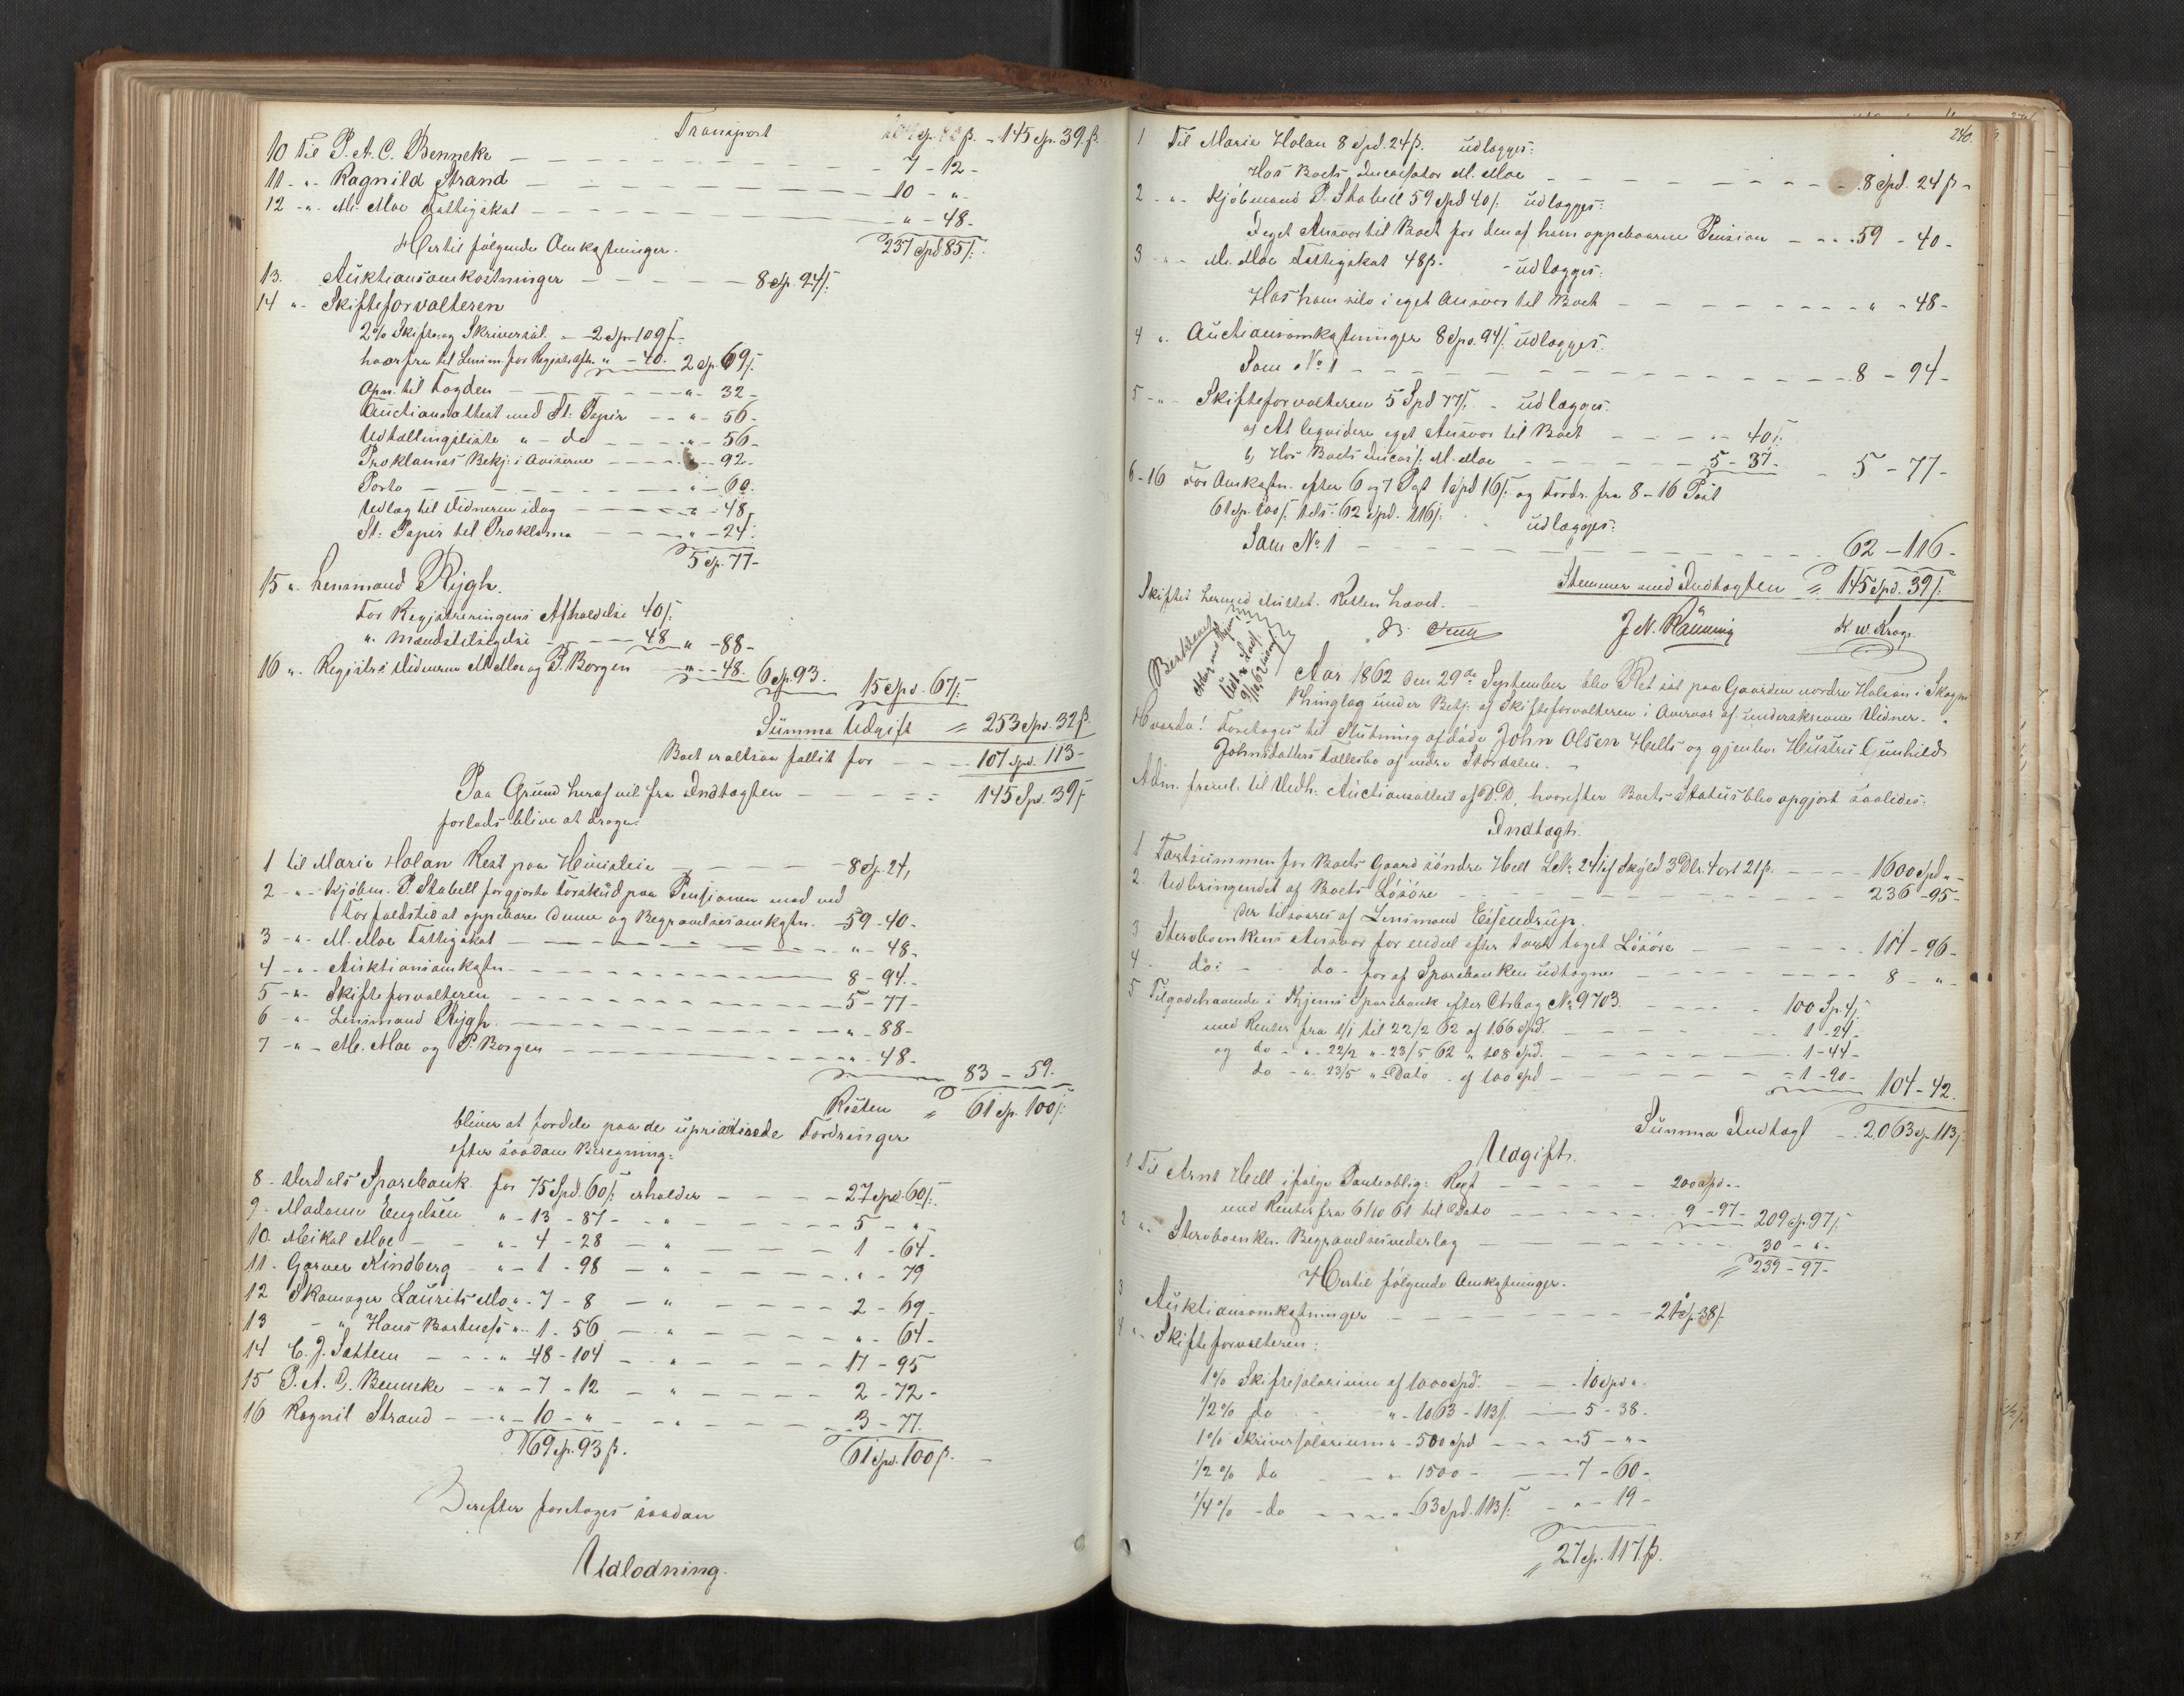 Transport 145 Sp. 39 ß.
10 Til P. A. C. Benneke - 7 - 12 -
11 - " - Ragnild Strand - 10 - " -
12 - " - M. Moe Fattigskat - " - 48 -
237 Spd. 85 ß.
Hertil følgende Omkostninger.
13. Auktionsomkostninger - 8 Sp. 94 ß.
14 " - Skifteforvalteren
2% Skifte og Skriversal. - 2 Sp. 109 ß.
hvorfra til Lensm. for Registr. Afh. " - 40. 2 Sp. 69 ß.
Opn. til Fogden - " - 32 -
Auctionsattest med St: Papir - " - 56 -
Udtællingsliste " - do - " - 56 -
Proklamas Bekj: i Aviserne - " - 92 -
Porto - " - 60.
Udlæg til Vidnerne idag - " - 48 -
St: Papir til Proklama - " - 24.
5 Sp. 77 -
15 " Lensmand Rygh.
For Registreringens Afholdelse 40 ß.
" Mandstilsigelse - 48 " - 88 -
16 " Registr: Vidnerne M. Moe og P. Borgen " - 48. 6 Sp. 93.
15 Spd. 67 ß.
Summa Udgift = 253 Spd. 32 ß.
Boet er altsaa fallit for - 107 Spd. 113 -
Paa Grund heraf vil fra Indtægten - 145 Spd. 39 ß
forlods blive at drage:
1 til Maria Holan Rest paa Huusleie - 8 Sp. 24,
2 - " - Kjøbm. P. Stabell for gjorte Forskud paa Pensionen mod ved
Forfaldstid at oppebære denne og Begravelsesomkostn. - 59 - 40 -
3 - " - M. Moe Fattigskat - " - 48 -
4 - " - Auktionsomkostn. - 8 - 94 -
5 - " - Skifteforvalteren - 5 - 77 -
6 - " - Lensmand Rygh - " - 88 -
7 - " - M. Moe og P. Borgen - " - 48 -
83 - 59.
Resten = 61 Sp. 100 ß.
bliver at fordele paa de uprioriterede Fordringer
efter saadan Beregning:
8 - Verdals Sparebank for 75 Spd. 60 ß. erholder - 27 Spd. 60 ß.
9 - Madame Engelsen " - 13 - 87 - " - 5 - " -
10. Meikal Moe - " - 4 - 28 - " - 1 - 64 -
11 - Garver Kindberg - " - 1 - 98 - " - " - 79
12 Skomager Laurits Mo " - 7 - 8 - " - 2 - 69 -
13 - " Hans Bartnæss " - 1 - 56 - " - " - 64 -
14 C. J. Sættem - " 48 - 104 - " - 17 - 95
15 P. A. C. Benneke - " - 7 - 12 - " - 2 - 72 -
16 Ragnil Strand - " - 10 - " - " - 3 - 77.
169 Sp. 93 ß. 61 Spd. 100 ß.
Derefter foretages saadan
Udlodning.
240.
1 Til Maria Holan 8 Spd. 24 ß. udlægges:
Hos Boets Incassator M. Moe - 8 Spd. 24 ß -
2 - " - Kjøbmand P. Stabell 59 Spd 40 ß. udlægges:
I eget Ansvar til Boet for den af ham oppebaarne Pension - 59 - 40 -
3 - " - M. Moe Fattigskat 48 ß. - udlægges:
Hos ham selv i eget Ansvar til Boet - " - 48 -
4 " - Auctionsomkostninger 8 Spd. 94 ß. udlægges:
Som No 1 - 8 - 94 -
5 - " - Skifteforvalteren 5 Spd 77 ß. - udlægges:
a, At liqvidere eget Ansvar til Boet - 40 ß.
b, Hos Boets Incass: M. Moe - 5 - 37 - 5 - 77 -
6 - 16 For Omkostn. efter 6 og 7 Post 1 Spd 16 ß. og Fordr. fra 8 - 16 Post
61 Sp. 100 ß. tils: 62 Spd. 116 ß. udlægges:
Som No 1 - 62 - 116 -
Stemmer med Indtægten = 145 Spd. 39 ß.
Skiftet hermed sluttet. Retten hævet. -
J. N. Rønning K. W. Krog
Aar 1862 den 29de September blev Ret sat paa Gaarden nordre Holan i Skogn
Thinglag under Betj: af Skifteforvalteren i Overvær af underskrevne Vidner.
Hvorda! Foretoges til Slutning afdøde John Olsen Hells og gjenlev: Hustru Gunhild
Johnsdatters Fællesbo af nedre Stordalen. -
Adm. freml. til Vedh. Auctionsattest af D. D, hvorefter Boets Status blev opgjort saaledes:
Indtægt.
1 Kartsummen for Boets Gaard søndre Hell L No 241 af Skyld 3 Dlr. 4 ort 21 ß. - 1600 Spd " -
2. Udbringendet af Boets Løsøre - 236 - 95 -
der tilsvares af Lensmand Essendrup.
3 Stervboenkens Ansvar for endel efter Taxt taget Løsøre - 114 - 96 -
4 - do: - do - for af Sparebanken udtagne - 8 - " -
5 Tilgodehavende i Hjems Sparebank efter Ctrbog No 9703. - 100 Sp. 4 ß.
med Renter fra 1/1 til 22/2 62 af 166 Spd. - 1 - 24 -
og do - " - 22/2 " - 23/5 62 " 108 Spd. - 1 - 44 -
do - " - 23/5 " - Dato - af 100 Spd - 1 - 90 - 104 - 42.
Summa Indtægt - 2,063 Sp. 113 ß.
Udgift.
1 Til Arnt Hell ifølge Panteoblig: Rest - 200 Spd. -
med Renter fra 6/10 61 til Dato - 9 - 97 - 209 Sp. 97 ß.
2 " - Stervboenken Begravelsesvederlag - 30 - " -
= 239 - 97 -
Hertil følgende Omkostninger.
3 Auktionsomkostninger - 38 ß.
4 " - Skifteforvalteren:
1% Skiftesalarium af 1000 Spd. - 10 Spd " -
1/2% do - " - 1063 - 113 ß. - 5 - 38 -
1% Skriversalarium " - 500 Spd - 5 - " -
1/2% do - " - 1500 - 7 - 60 -
1/4% - do - " - 63 Spd. 113 ß. - " - 19 -
= 27 Sp. 117 ß.